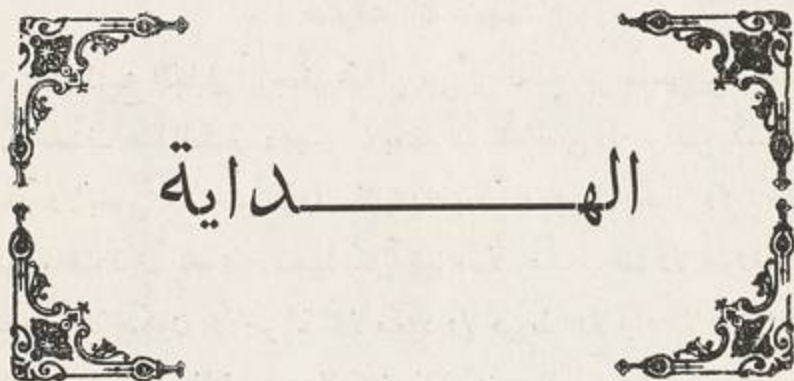 الهـــــــداية